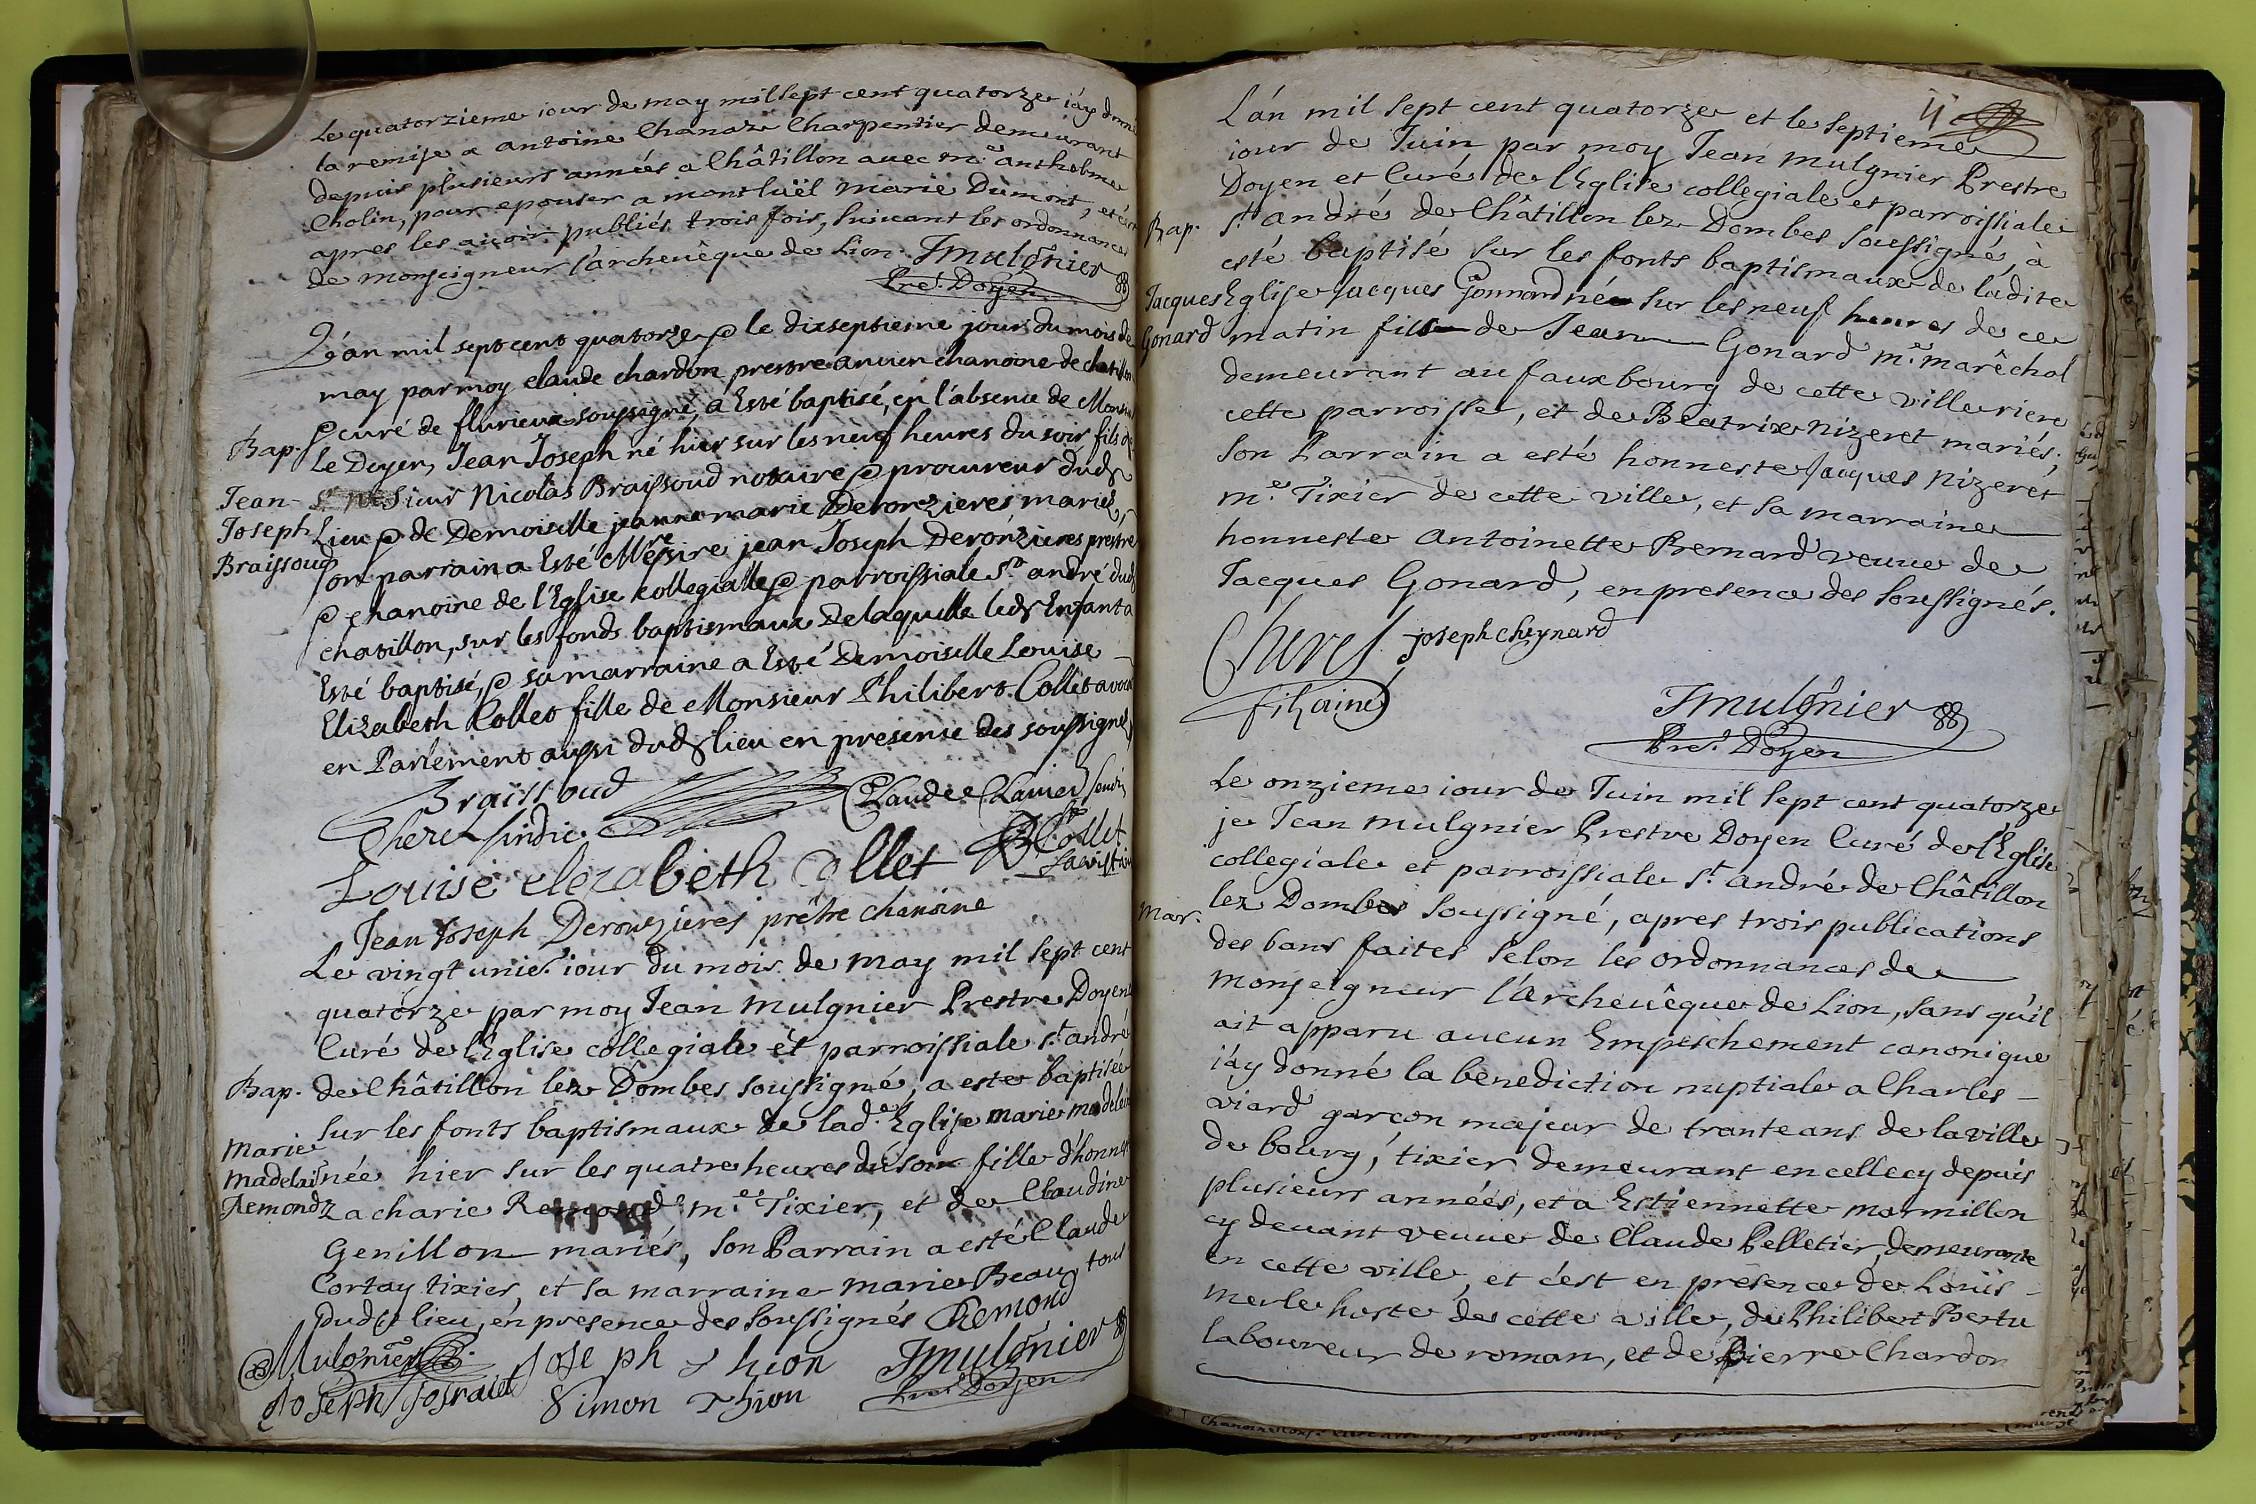 Le quatorzieme iour de may mil sept cent quatorze i'ay donné
la remise a antoine Chanaz Charpentier demeurant
depuis plusieurs années a Châtillon auec m.e anthelme
Cholin, pour epouser a montluël marie Dumont, et
apres les auoir publiés trois fois, suiuant les ordonnances
de monseigneur l'archeuêque de Lion. JMulgnier
Pre. Doyen
L'an mil sept cent quatorze & le dixseptieme jour du mois de
may par moy claude chardon prestre ancien chanoine de chatillon
& curé de flurieux soussigné, a Esté baptisé, en l'absence de Monsieur
Bap. Le Doyen, Jean Joseph né hier sur les neuf heures du soir fils de
Jean- Sieur Nicolas Braissoud notaire & procureur dud
Joseph Lieu & de Demoiselle jeanne marie Deronzieres mariés,
Braissoud son parrain a Esté Messire jean Joseph Deronzieres prestre
& chanoine de l'Eglise collegialle & parroissiale St andré dud
chatillon, sur les fonds baptismaux De laquelle led Enfant a
Esté baptisé, & sa marraine a Esté Demoiselle Louise
Elizabeth Collet fille de Monsieur Philibert Collet avocat
en Parlement aussi dud lieu en presense des soussignes
Braissoud Claude Clavier
Cheres sindic Collet
Louise elezabeth Collet
Jean Joseph Deronzieres prêtre chanoine
Le vingt unie. iour du mois de may mil sept cent
quatorze par moy Jean Mulgnier Prestre Doyen
Curé de l'Eglise collegiale et parroissiale St andré
Bap. de Châtillon lez Dombes soussigné, a este baptisée
sur les fonts baptismaux de lad.e Eglise marie madeleine
Marie
madelai née hier sur les quatre heures du soir fille d'honn
Remond Zacharie Remond m.e Tixier, et de Claudine
Genillon mariés, son Parrain a esté Claude
Cortay tixier, et sa marraine marie Beau, tous
Dud lieu, en presence des soussignés Remond
Mulgnier Joseph Thion JMulgnier
Joseph Simon Thion Pre. Doyen
11
L'an mil sept cent quatorze et le septieme
iour de Juin par moy Jean Mulgnier Prestre
Doyen et Curé de l'Eglise collegiale et parroissiale
Bap. St andré de Châtillon lez Dombes soussigné, à
esté baptisé sur les fonts baptismaux de ladite
Jacques Eglise Jacques Gonnard né sur les neuf heures de ce
Gonard matin fils de Jean Gonard m.e marêchal
demeurant au fauxbourg de cette ville riere
cette parroisse, et de Beatrix Nizeret mariés;
son Parrain a esté honneste Jacques Nizeret
m.e Tixier de cette ville, et sa marraine
honneste Antoinette Premard veuue de
Jacques Gonard, en presence des soussignés.
Cheres joseph cheynard
fils ainé
JMulgnier
Pre. Doyen
Le onzieme iour de Juin mil sept cent quatorze
je Jean Mulgnier Prestre Doyen Curé de l'Eglise
collegiale et parroissiale St andré de Châtillon
Mar. lez Dombes soussigné, apres trois publications
des bans faites selon les ordonnances de
Monseigneur l'Archeuêque de Lion, sans qu'il
ait apparu aucun Empeschement canonique
i'ay donné la benediction nuptiale a Charles
Viard garcon majeur de trante ans de la ville
de bourg, tixier demeurant en celle cy depuis
plusieurs années, et a Estiennette Marmillon
cy deuant veuue de Claude Pelletier, demeurante
en cette ville, et c'est en présence de Louis
Merle hoste de cette ville, de Philibert Bertu
laboureur de roman, et de Pierre Chardon